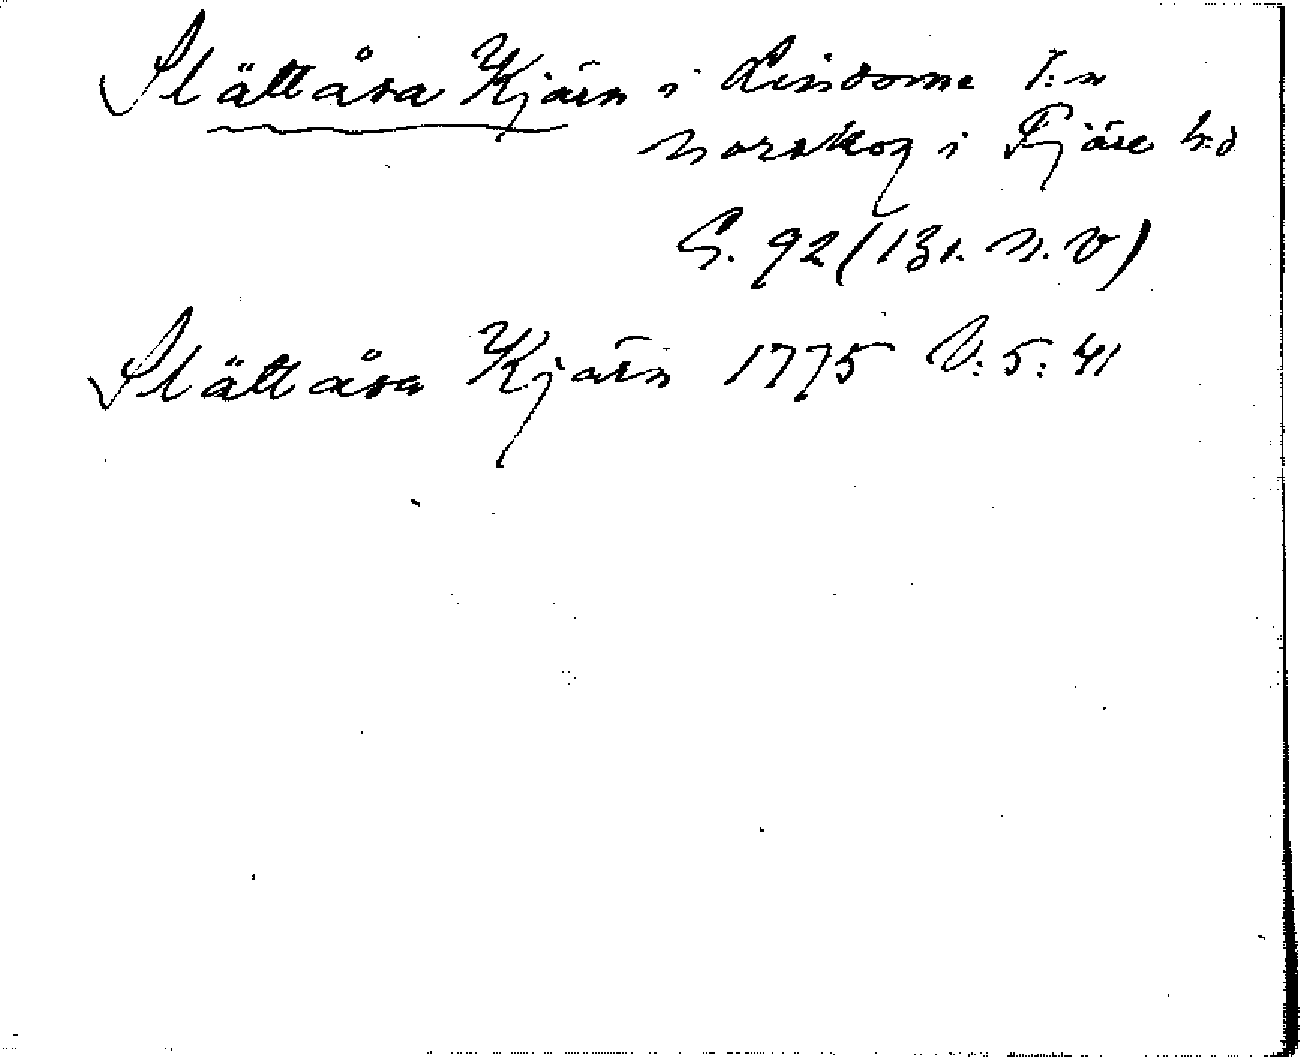 Slättåsa Kjärn i Lindome s:n
norskog i Fjäre h:d
S. 92 (13 r. n. v)
Slättåsa Kjärn 1775 V: 5: 41